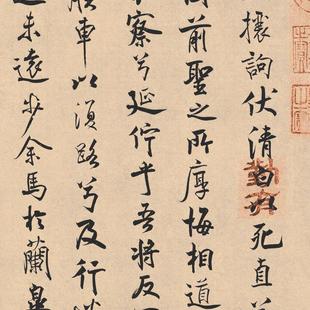 攘訽伏清白以死直
前聖之所厚悔相道
察兮延佇乎吾将反
朕車以復路兮及行迷
未遠步余馬於蘭皋